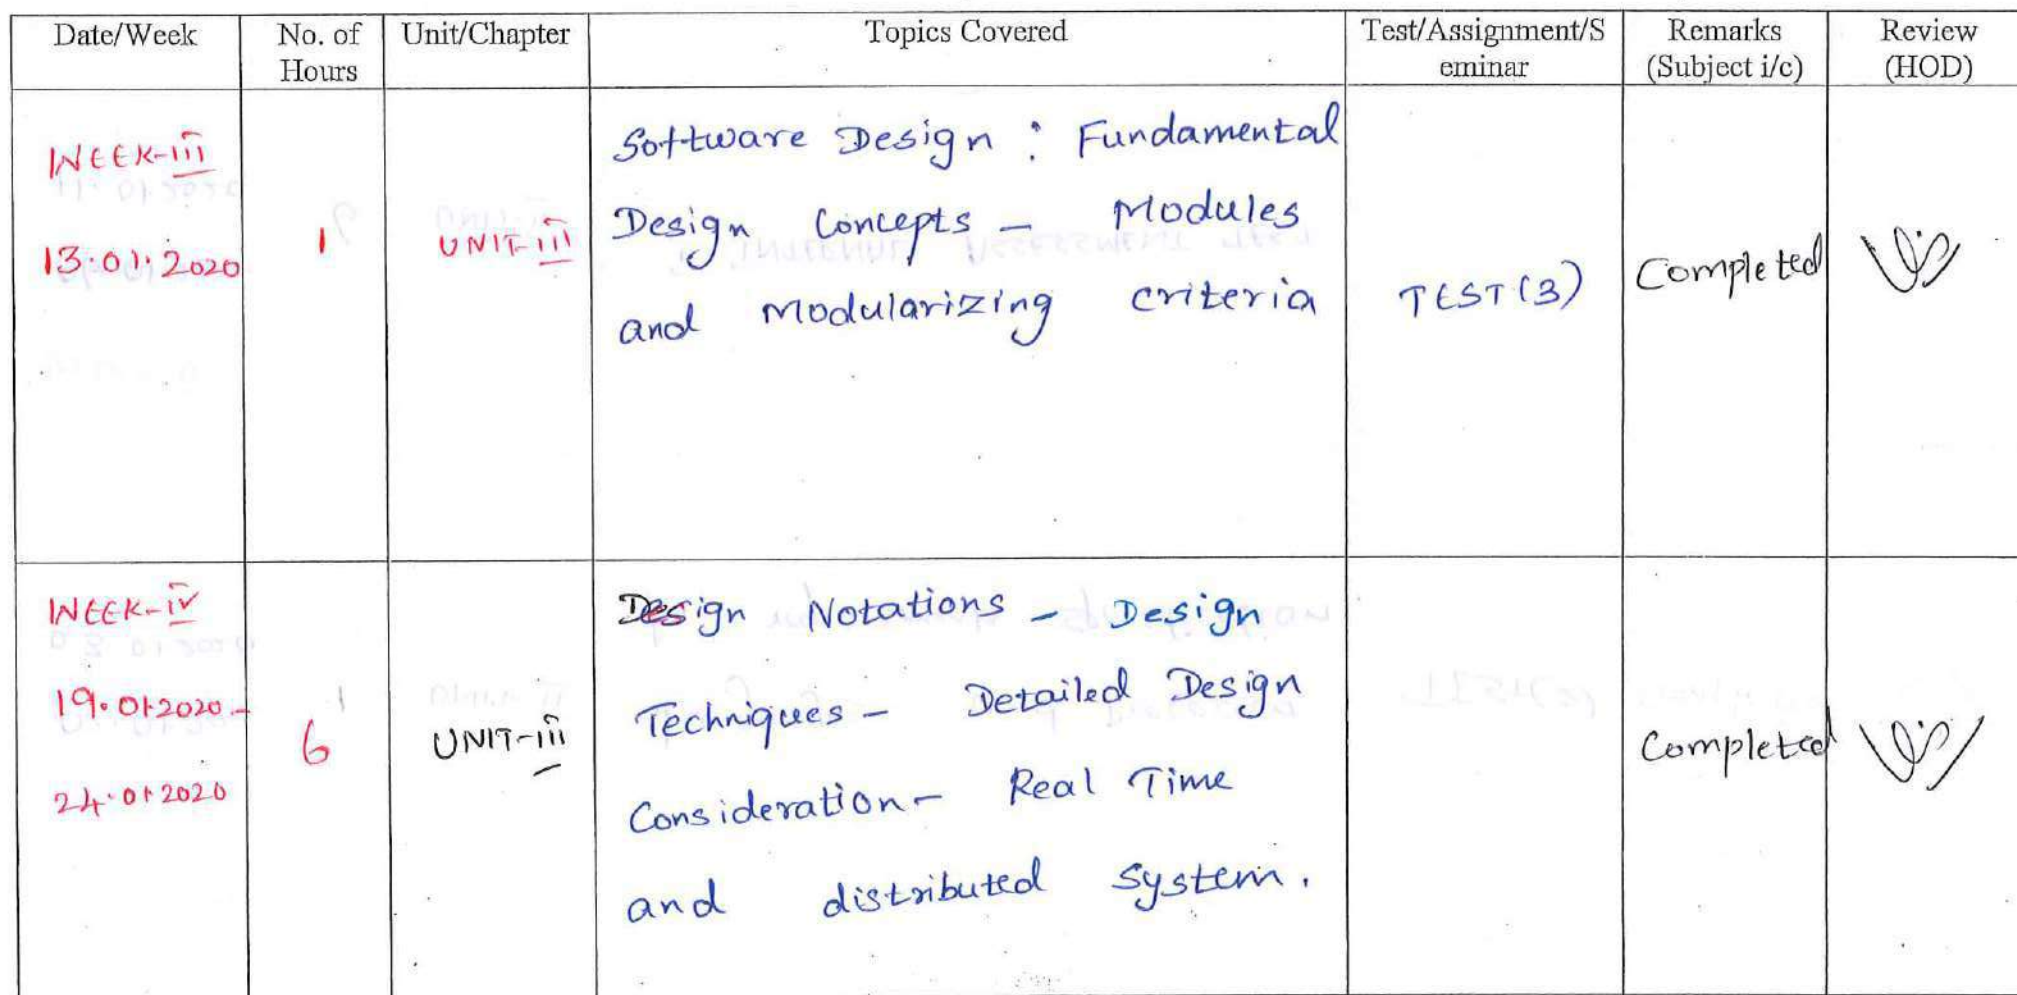 Date/Week No. of Hours Unit/Chapter Topics Covered Test/Assignment/S eminar Remarks (Subject i/c) Review (HOD)
WEEK-iii
13.01.2020
1
UNIT-iii
Software Design : Fundamental
Design Concepts – Modules
and Modularizing criteria
TEST(3)
Completed
WEEK-iv
19.01.2020 -
24.01.2020
6
UNIT-iii
Design Notations – Design
Techniques – Detailed Design
Consideration – Real Time
and distributed System.
Completed